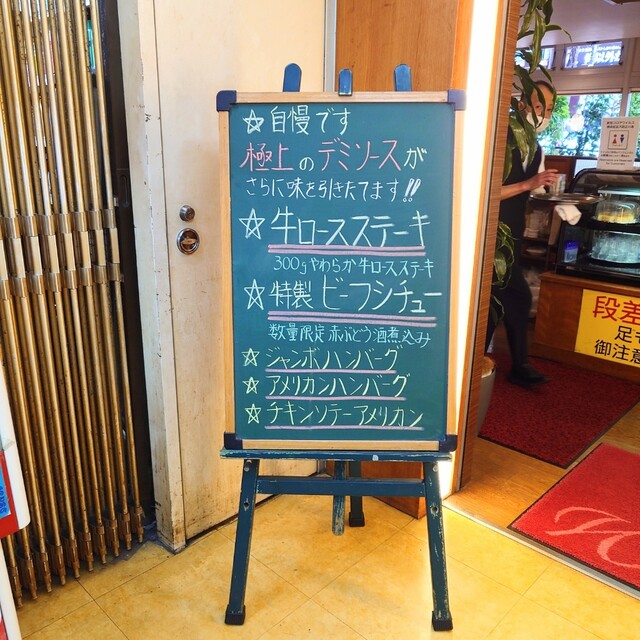 ☆自慢です
極上のデミソースが
さらに味を引きたてます!!
☆牛ロースステーキ
300gやわらか牛ロースステーキ
☆特製 ビーフシチュー
数量限定赤ぶどう酒煮込み
☆ジャンボハンバーグ
☆アメリカンハンバーグ
☆チキンソテーアメリカン
段差
足
御注意